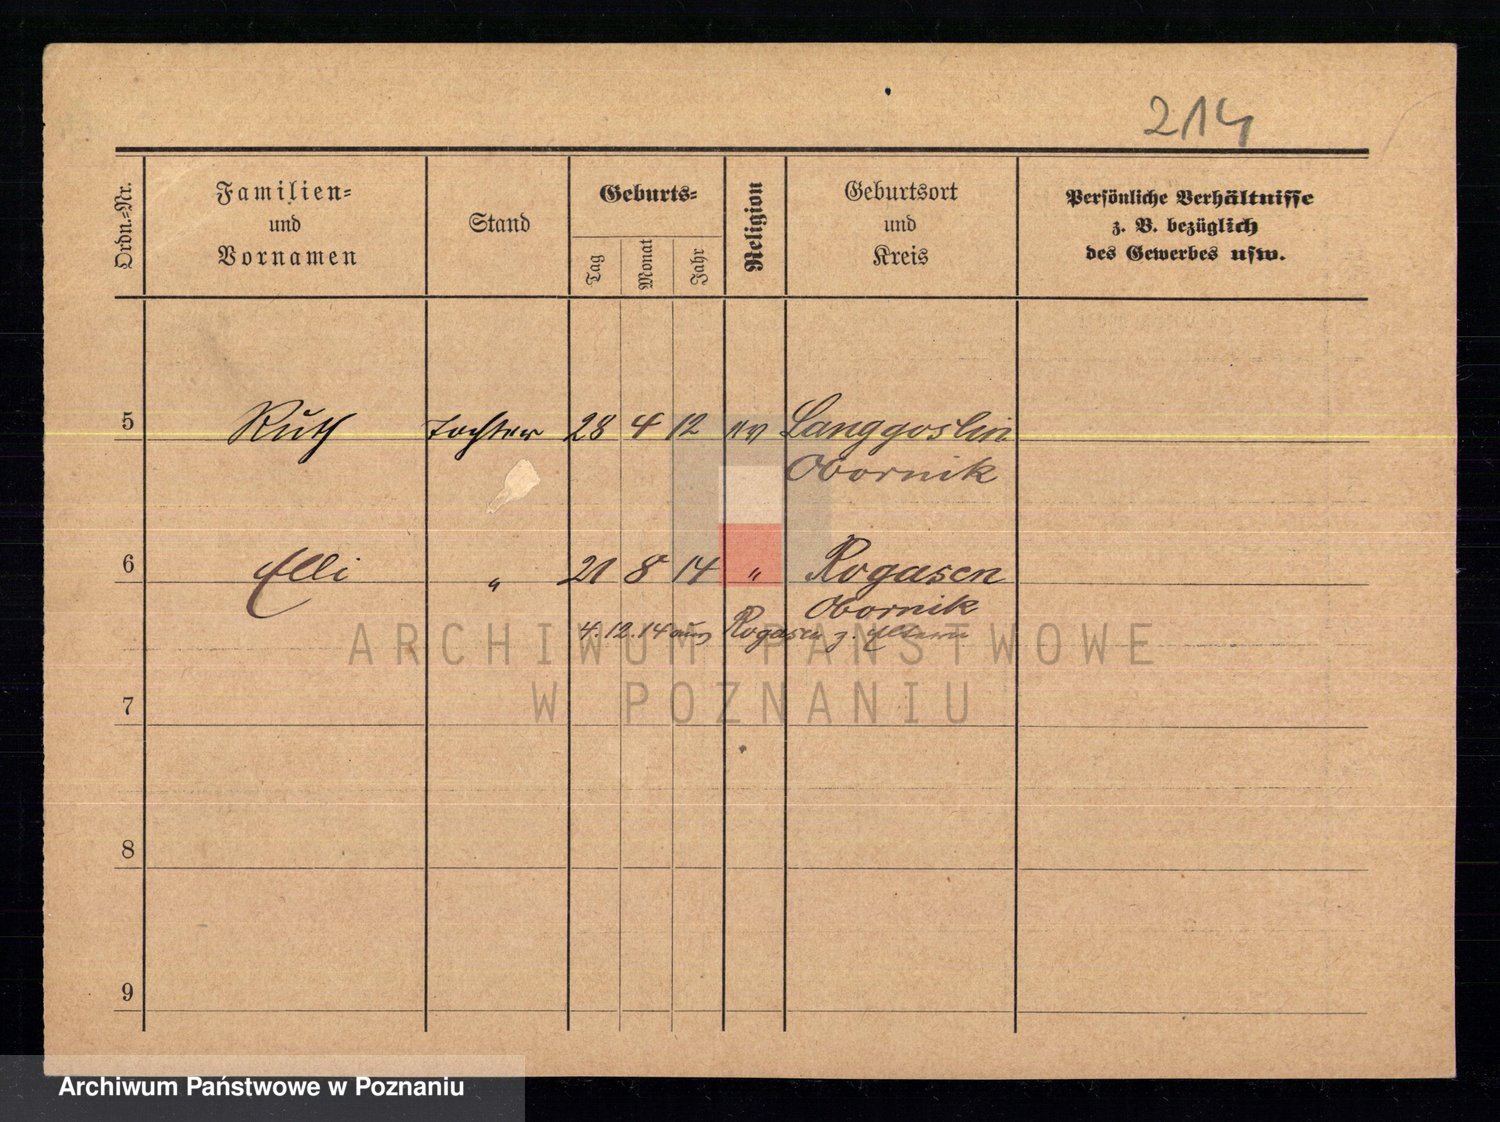 214
Ordn.-Nr.
Familien-
und
Vornamen
Stand
Geburts-
Tag
Monat
Jahr
Religion
Geburtsort
und
Kreis
Persönliche Verhältnisse
z. B. bezüglich
des Gewerbes usw.
5 Ruth Tochter 28 4 12 ev Langgoslin
Obornik
6 Elli " 21 8 14 " Rogasen
Obornik
4.12.14 aus Rogasen z. Eltern
ARCHIWUM PAŃSTWOWE
W POZNANIU
7
8
9
Archiwum Państwowe w Poznaniu